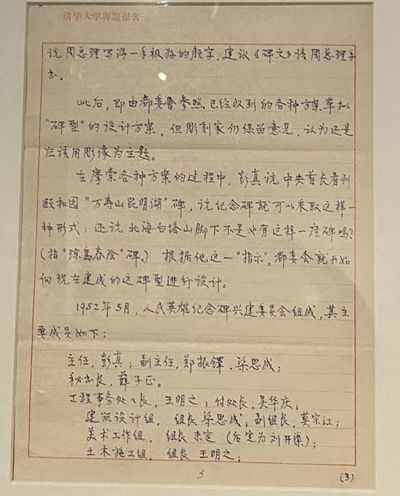 清华大学专题报告
说周总理写得一手极好的颜字，建议《碑文》请周总理手
书。
此后，即由都委会参照已经收到的各种方案草拟
“碑型”的设计方案，但彫刻家仍保留意见，认为还是
应该用彫像为主题。
在摩索各种方案的过程中，彭真说中央首长看到
颐和园“万寿山昆明湖”碑，说纪念碑就可以采取这样一
种形式；还说北海白塔山脚下不是也有这样一座碑吗？
（指“琼岛春阴”碑。）根据他这一“指示”，都委会就开始
向现在建成的这碑型进行设计。
1952年5月，人民英雄纪念碑兴建委员会组成，其主
要成员如下：
主任，彭真；副主任，郑振铎、梁思成；
秘书长，薛子正。
工程事务处处长，王明之；付处长，吴华庆；
建筑设计组，组长梁思成，副组长，莫宗江；
美术工作组，组长未定（后定为刘开渠）；
土木施工组，组长王明之；
3
(3)